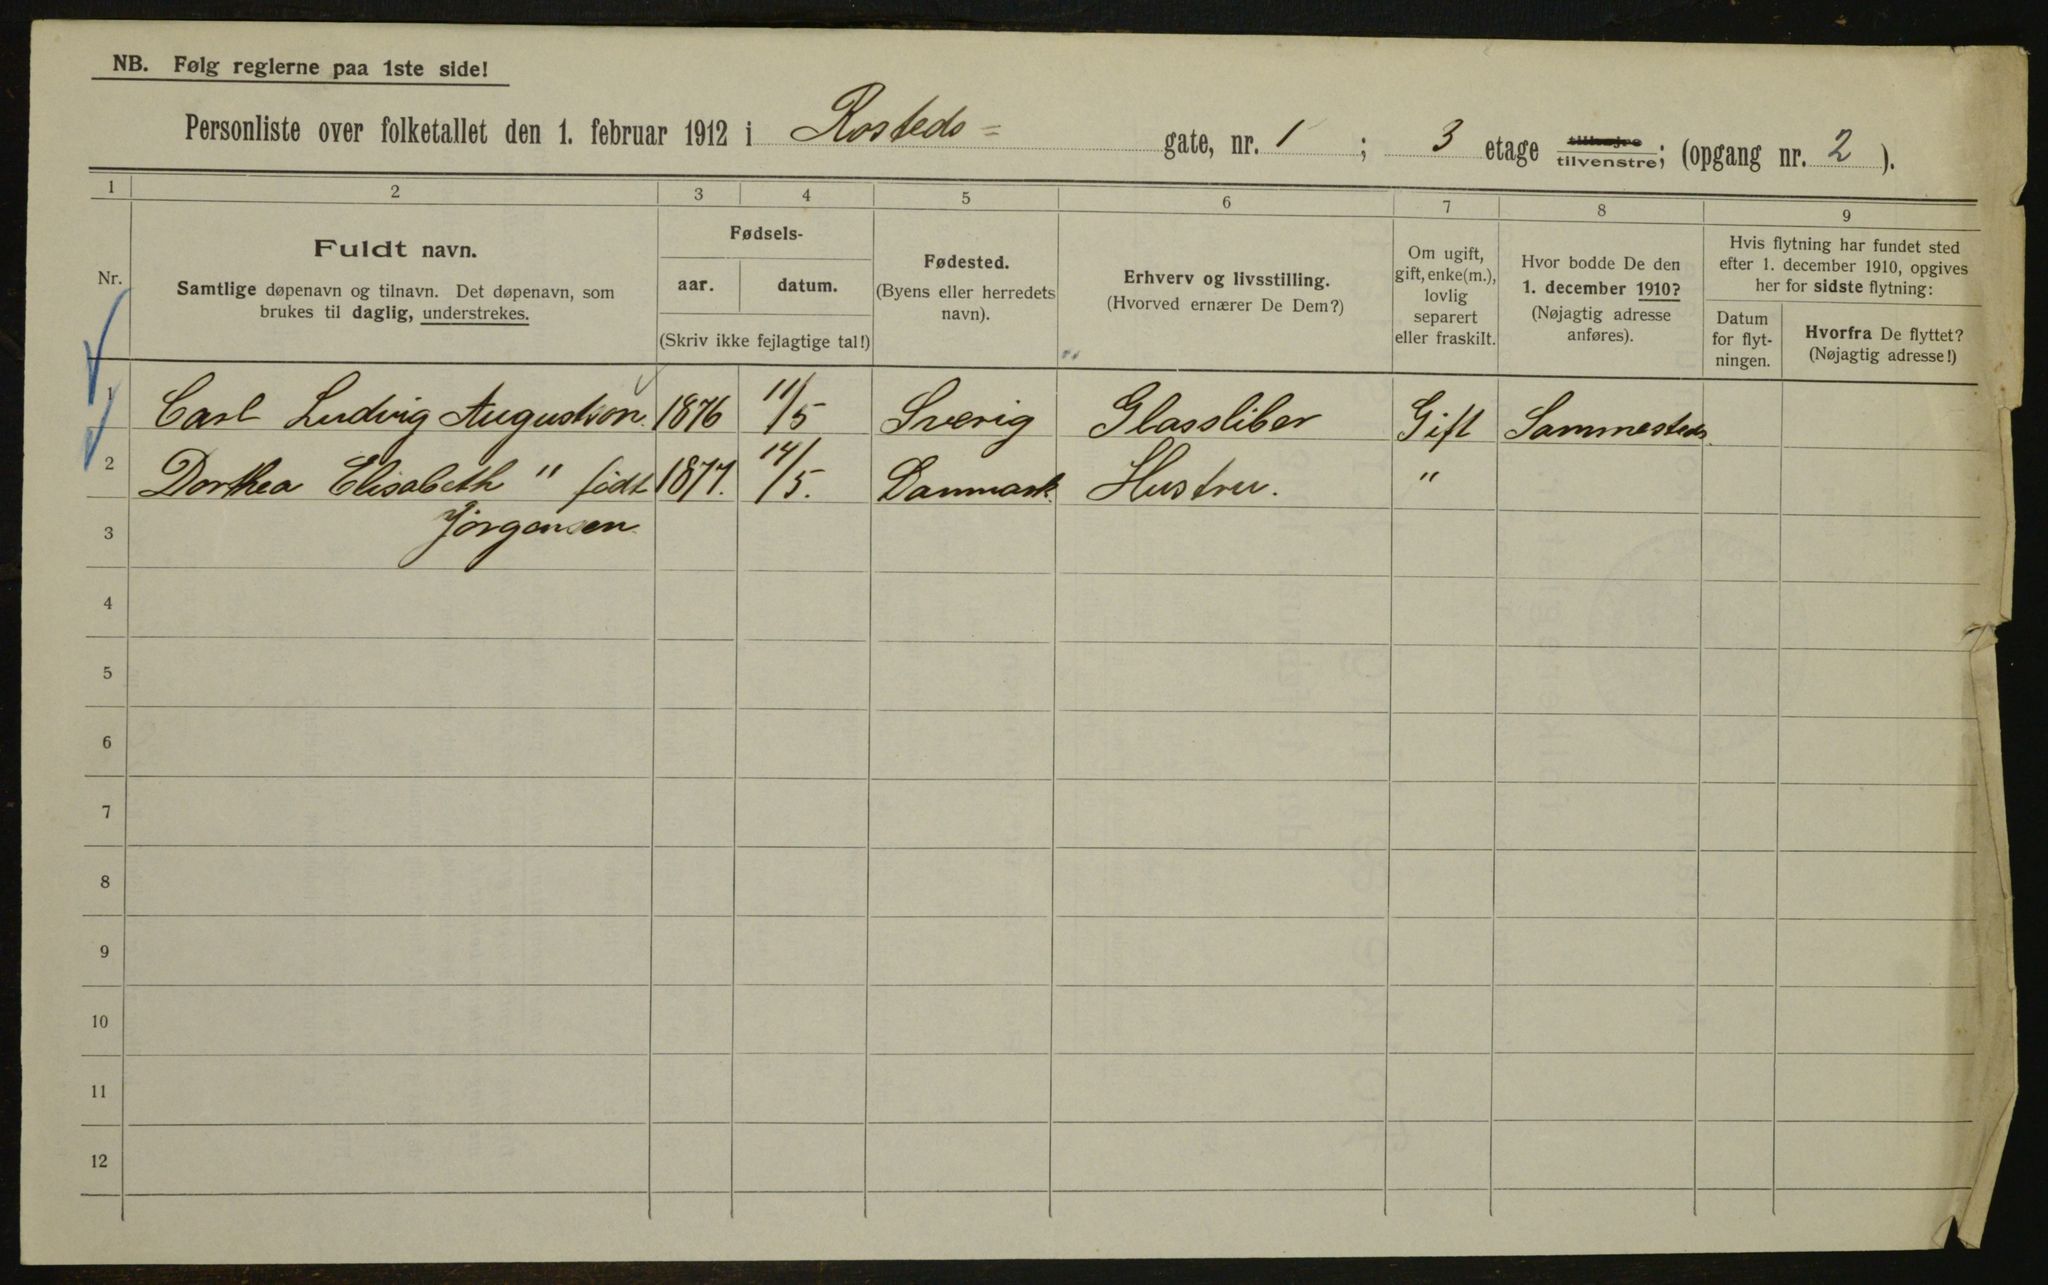 NB. Følg reglerne paa 1ste side!
Personliste over folketallet den 1. februar 1912 i Rosteds= gate, nr. 1 ; 3 etage tilhøjre tilvenstre; (opgang nr. 2 ).
1 2 3 4 5 6 7 8 9
Nr.
Fuldt navn.
Samtlige døpenavn og tilnavn. Det døpenavn, som
brukes til daglig, understrekes.
Fødsels-
aar. datum.
(Skriv ikke fejlagtige tal!)
Fødested.
(Byens eller herredets
navn).
Erhverv og livsstilling.
(Hvorved ernærer De Dem?)
Om ugift,
gift, enke(m.),
lovlig
separert
eller fraskilt.
Hvor bodde De den
1. december 1910?
(Nøjagtig adresse
anføres).
Hvis flytning har fundet sted
efter 1. december 1910, opgives
her for sidste flytning:
Datum
for flyt-
ningen.
Hvorfra De flyttet?
(Nøjagtig adresse!)
1 Carl Ludvig Augustson. 1876 11/5 Sverig Glassliber Gift Sammesteds.
2 Dorthea Elisabeth " född 1877. 14/5. Danmark. Hustru. "
3 Jörgensen
4
5
6
7
8
9
10
11
12